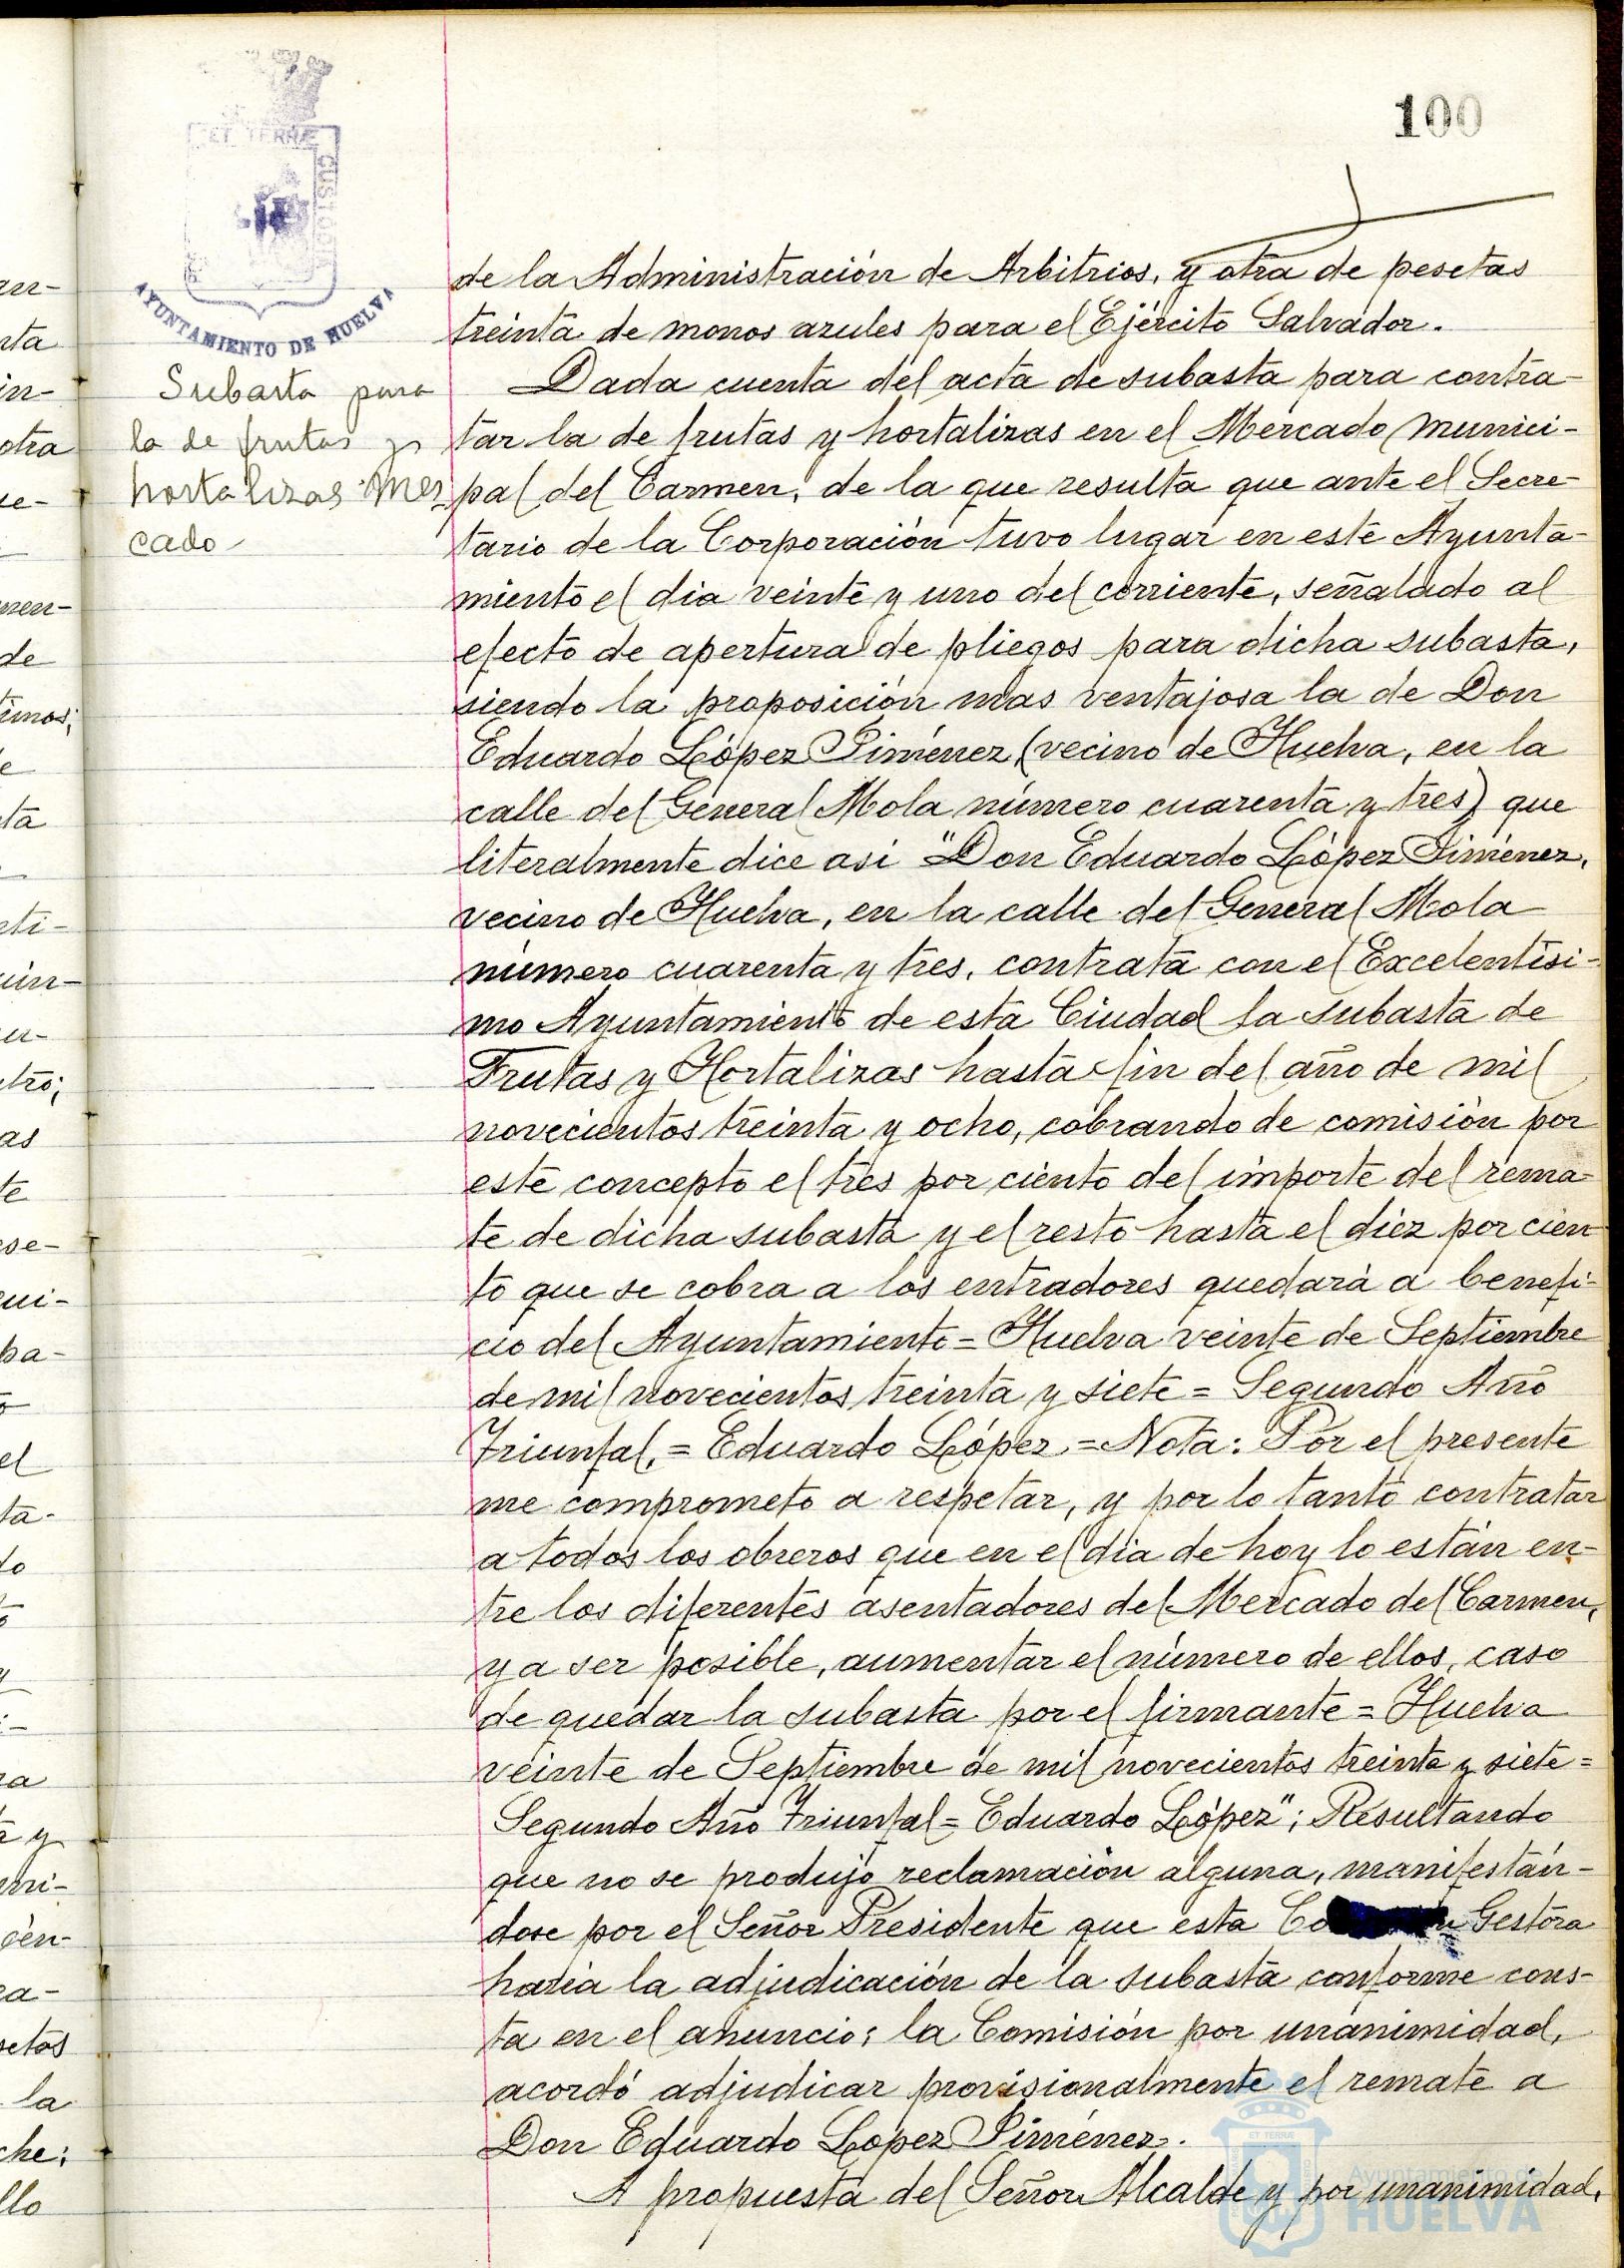 100
ET TERRÆ
CUSTODI
AYUNTAMIENTO DE HUELVA
Subasta para
la de frutas y
hortalizas Mer
cado
de la Administración de Arbitrios, y otra de pesetas
treinta de monos azules para el Ejército Salvador.
Dada cuenta del acta de subasta para contra-
tar la de frutas y hortalizas en el Mercado munici-
pal del Carmen, de la que resulta que ante el Secre-
tario de la Corporación tuvo lugar en este Ayunta-
miento el dia veinte y uno del corriente, señalado al
efecto de apertura de pliegos para dicha subasta,
siendo la proposición mas ventajosa la de Don
Eduardo López Jiménez, (vecino de Huelva, en la
calle del General Mola número cuarenta y tres) que
literalmente dice asi "Don Eduardo López Jiménez,
vecino de Huelva, en la calle del General Mola
número cuarenta y tres, contrata con el Excelentisi-
mo Ayuntamiento de esta Ciudad la subasta de
Frutas y Hortalizas hasta fin del año de mil
novecientos treinta y ocho, cobrando de comisión por
este concepto el tres por ciento del importe del rema-
te de dicha subasta y el resto hasta el diez por cien
to que se cobra a los entradores quedará a benefi-
cio del Ayuntamiento = Huelva veinte de Septiembre
de mil novecientos treinta y siete = Segundo Año
Triunfal, = Eduardo López = Nota: Por el presente
me comprometo a respetar, y por lo tanto contratar
a todos los obreros que en el dia de hoy lo están en-
tre los diferentes asentadores del Mercado del Carmen,
y a ser posible, aumentar el número de ellos, caso
de quedar la subasta por el firmante = Huelva
veinte de Septiembre de mil novecientos treinta y siete =
Segundo Año Triunfal = Eduardo López"; Resultando
que no se produjo reclamación alguna, manifestán-
dose por el Señor Presidente que esta Co Gestora
haria la adjudicación de la subasta conforme cons-
ta en el anuncio; la Comisión por unanimidad,
acordó adjudicar provisionalmente el remate a
Don Eduardo López Jiménez.
A propuesta del Señor Alcalde y por unanimidad,
ET TERRÆ
Ayuntamiento de
HUELVA